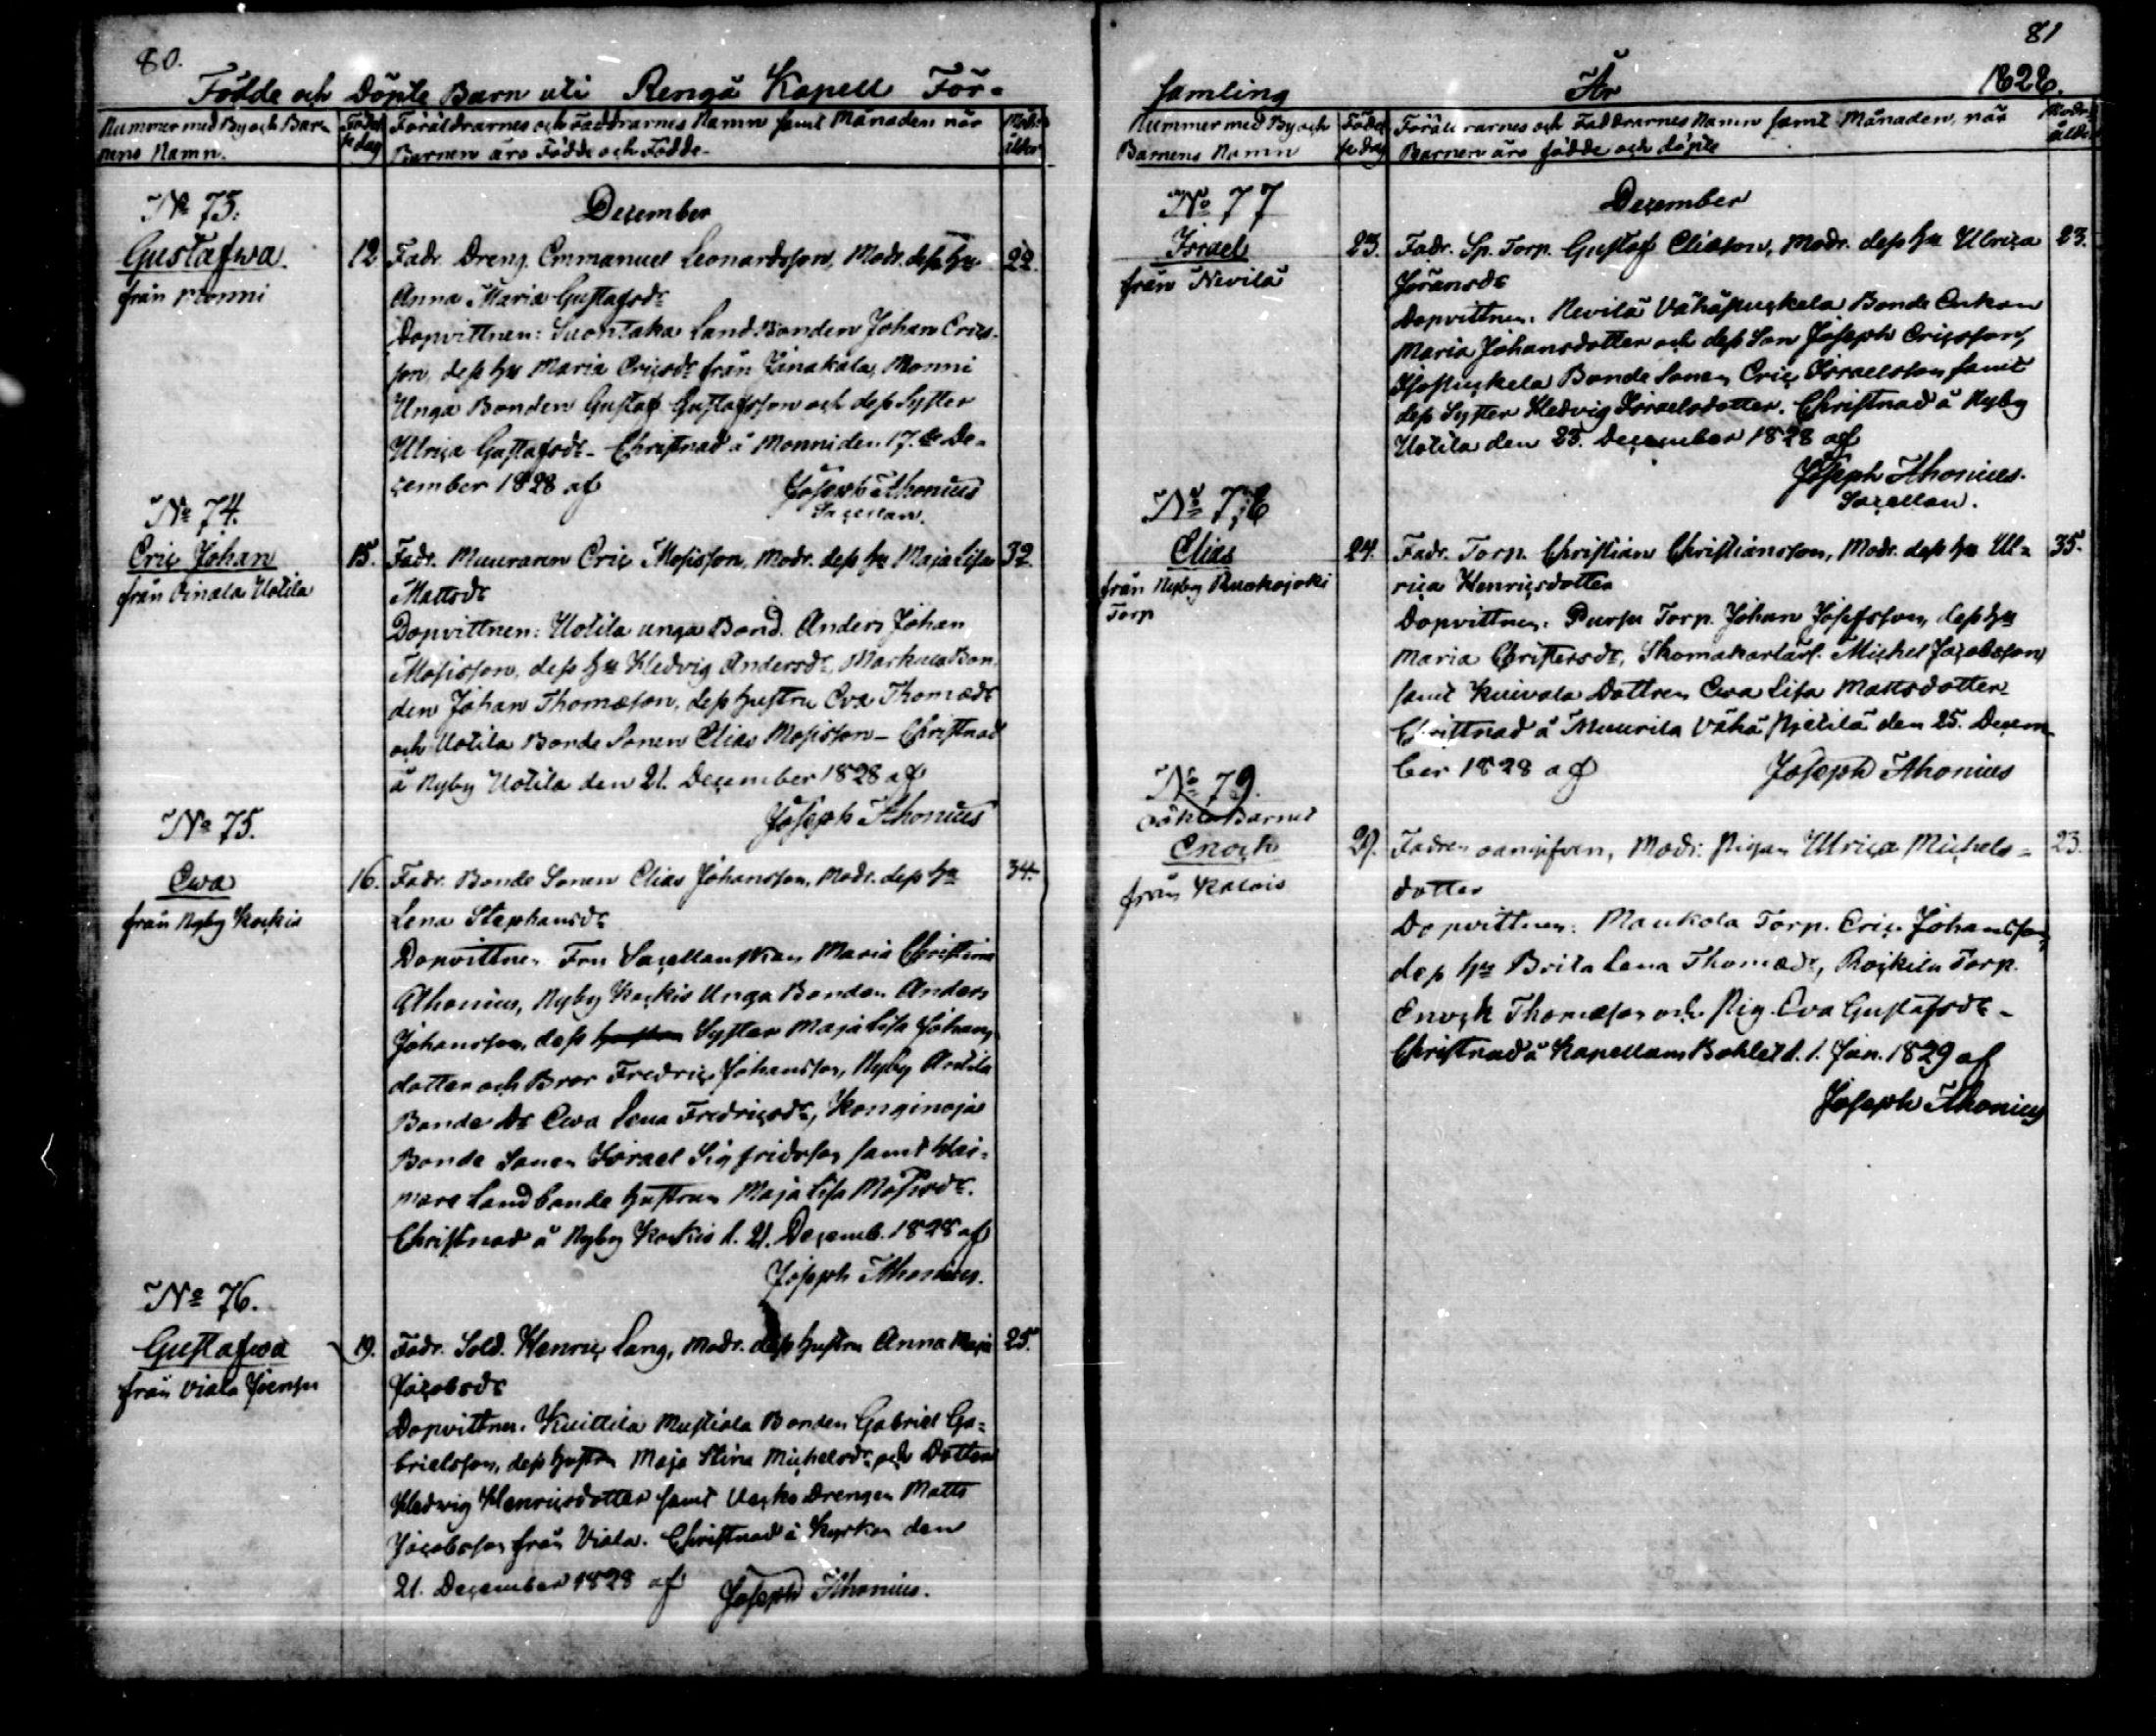 80.
Födde och Döpte Barn uti Rengå Kapell För=
Nummer med By och Bar=
nens Namn.
Födel
se dag
Föräldrarnes och Faddrarnes Namn samt Månaden när
Barnen äro Födde och Födde
Modr.
ålder
December
No 73.
Gustafwa
från Monni
12 Fadr. Dreng. Emmanuel Leonardsson, Modr. dess Hu 22.
Anna Maria Gustafsdr
Dopvittnen: Suontaka Land Bonden Johan Erics=
son, dess Hu Maria Ericsdr från Janakala, Monni
Unga Bonden Gustaf Gustafsson och dess Syster
Ulrica Gustafsdr - Christnad å Monni den 17.de De=
cember 1828 af Joseph Ahonius
Sacellan.
No 74.
Eric Johan
från Oinala Uotila
15. Fadr. Muuraren Eric Mosisson, Modr. dess Hu Maja Lisa 32
Mattsdr
Dopvittnen: Uotila unga Bond. Anders Johan
Mosisson, dess Hu Hedvig Andersdr, Markula Bon
den Johan Thomæson, dess hustru Eva Thomædr
och Uotila Bonde Sonen Elias Mosisson - Christnad
å Nyby Uotila den 21. December 1828 af
Joseph Ahonius
No 75.
Ewa
från Nyby Kockis
16. Fadr. Bonde Sonen Elias Johansson, Modr. dess Hu 34.
Lena Stephansdr
Dopvittnen Fru Sacellanskan Maria Christina
Ahonius, Nyby Kockis Unga Bonden Anders
Johansson, dess Syster Maja Lisa Johans
dotter och Bror Fredric Johansson, Nyby Anttila
Bonde Dr Ewa Lena Fredricsdr, Konginoja
Bonde Sonen Israel Sigfridsson samt
Landbonde hustrun Maja Lisa Mosisdr.
Christnad å Nyby Kockis d. 21. Decemb. 1828 af
Joseph Ahonius.
No 76.
Gustafwa
från Viala
19. Fadr. Sold. Henric Lang, Modr. dess hustru Anna Maja 25.
Jacobsdr
Dopvittnen. Kuittila Mustiala Bonden Gabriel Ga=
brielsson, dess hustru Maja Stina Michelsdr och Dotter
Hedwig Henricsdotter samt Drengen Matts
Jacobsson från Viala. Christnad å Kyrkan den
21. December 1828 af Joseph Ahonius.
81
samling År 1828.
Nummer med By och
Barnens Namn
Födel
se dag
Föräldrarnes och Faddrarnes Namn samt Månaden, när
Barnen äro födde och döpte
Modr.
ålder
December
No 77
Israel
från Nevilä
23. Fadr. Sp. Torp. Gustaf Eliason, Modr. dess Hu Ulrica 23.
Göransdr
Dopvittnen. Nevilä Vähäpuckela Bonde Enkan
Maria Johansdotter och dess Son Joseph Ericsson,
Isopuckela Bonde Sonen Eric Israelsson samt
dess Syster Hedvig Israelsdotter. Christnad å Nyby
Uotila den 23. December 1828 af
Joseph Ahonius.
Sacellan.
No 78
Elias
från Nyby Ruokojoki
Torp
24. Fadr. Torp. Christian Christiansson, Modr. dess Hu Ul= 35.
rica Henricsdotter
Dopvittnen. Torp. Johan Josefsson, dess Hu
Maria Christersdr, Michel Jacobsson
samt Kuivala Dottren Ewa Lisa Mattsdotter
Christnad å Muurila Vähä Pietilä den 25. Decem=
ber 1828 af Joseph Ahonius
No 79.
Oäkta Barnet
Enoch
från Kalois
29. Fadren oangifven, Modr. Pigan Ulrica Michels= 23.
dotter
Dopvittnen: Maukola Torp. Eric Johansson,
dess Hu Brita Lena Thomædr, Torp.
Enock Thomæson och Pig. Eva Gustafsdr -
Christnad å Kapellans Bohlet d. 1. Jan. 1829 af
Joseph Ahonius